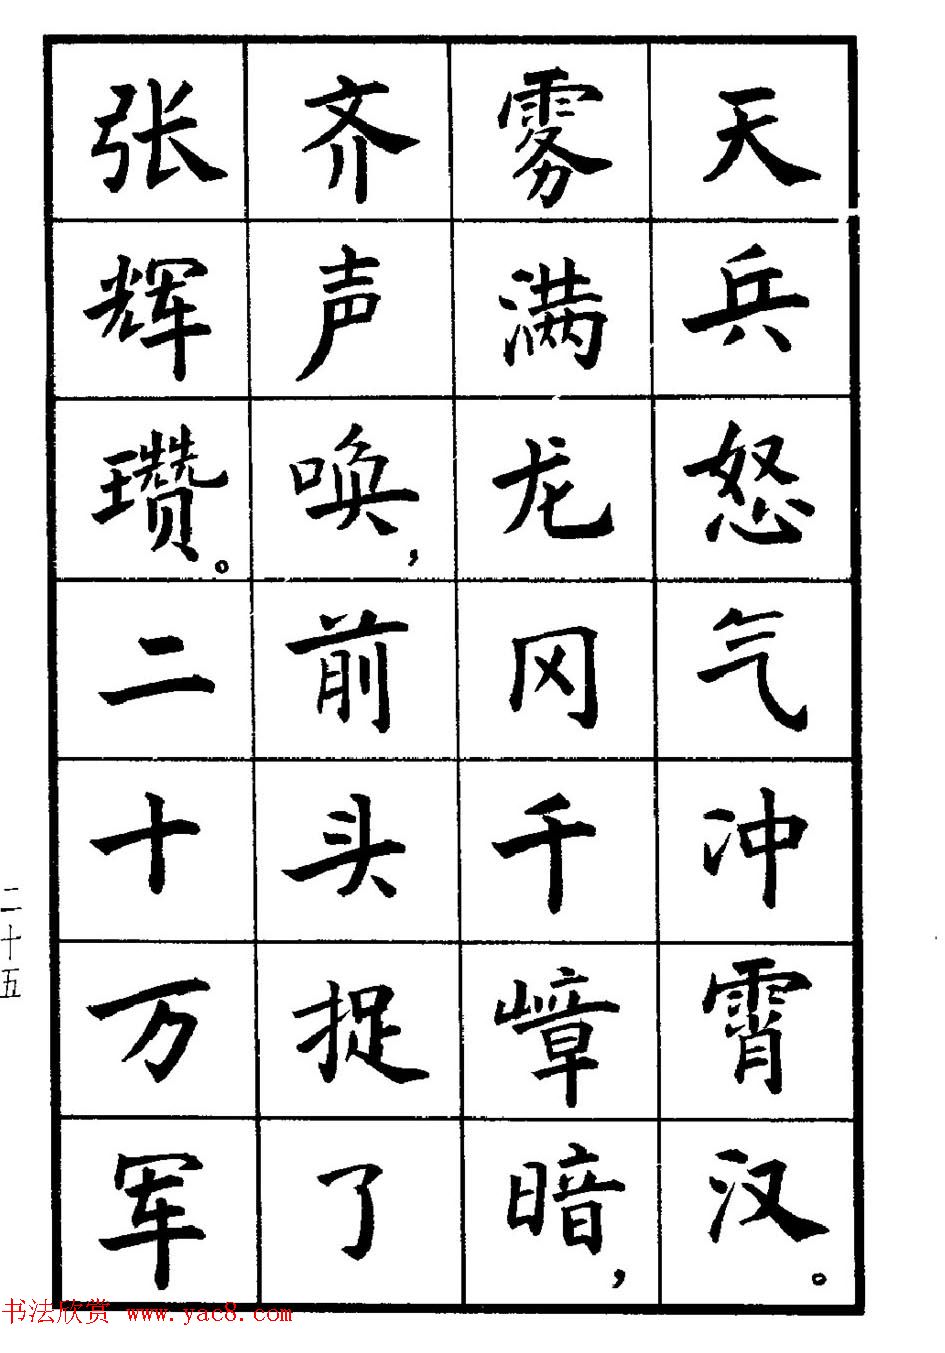 天兵怒气冲霄汉。
雾满龙冈千嶂暗，
齐声唤，前头捉了
张辉瓒。二十万军
二十五
书法欣赏 www.yac8.com